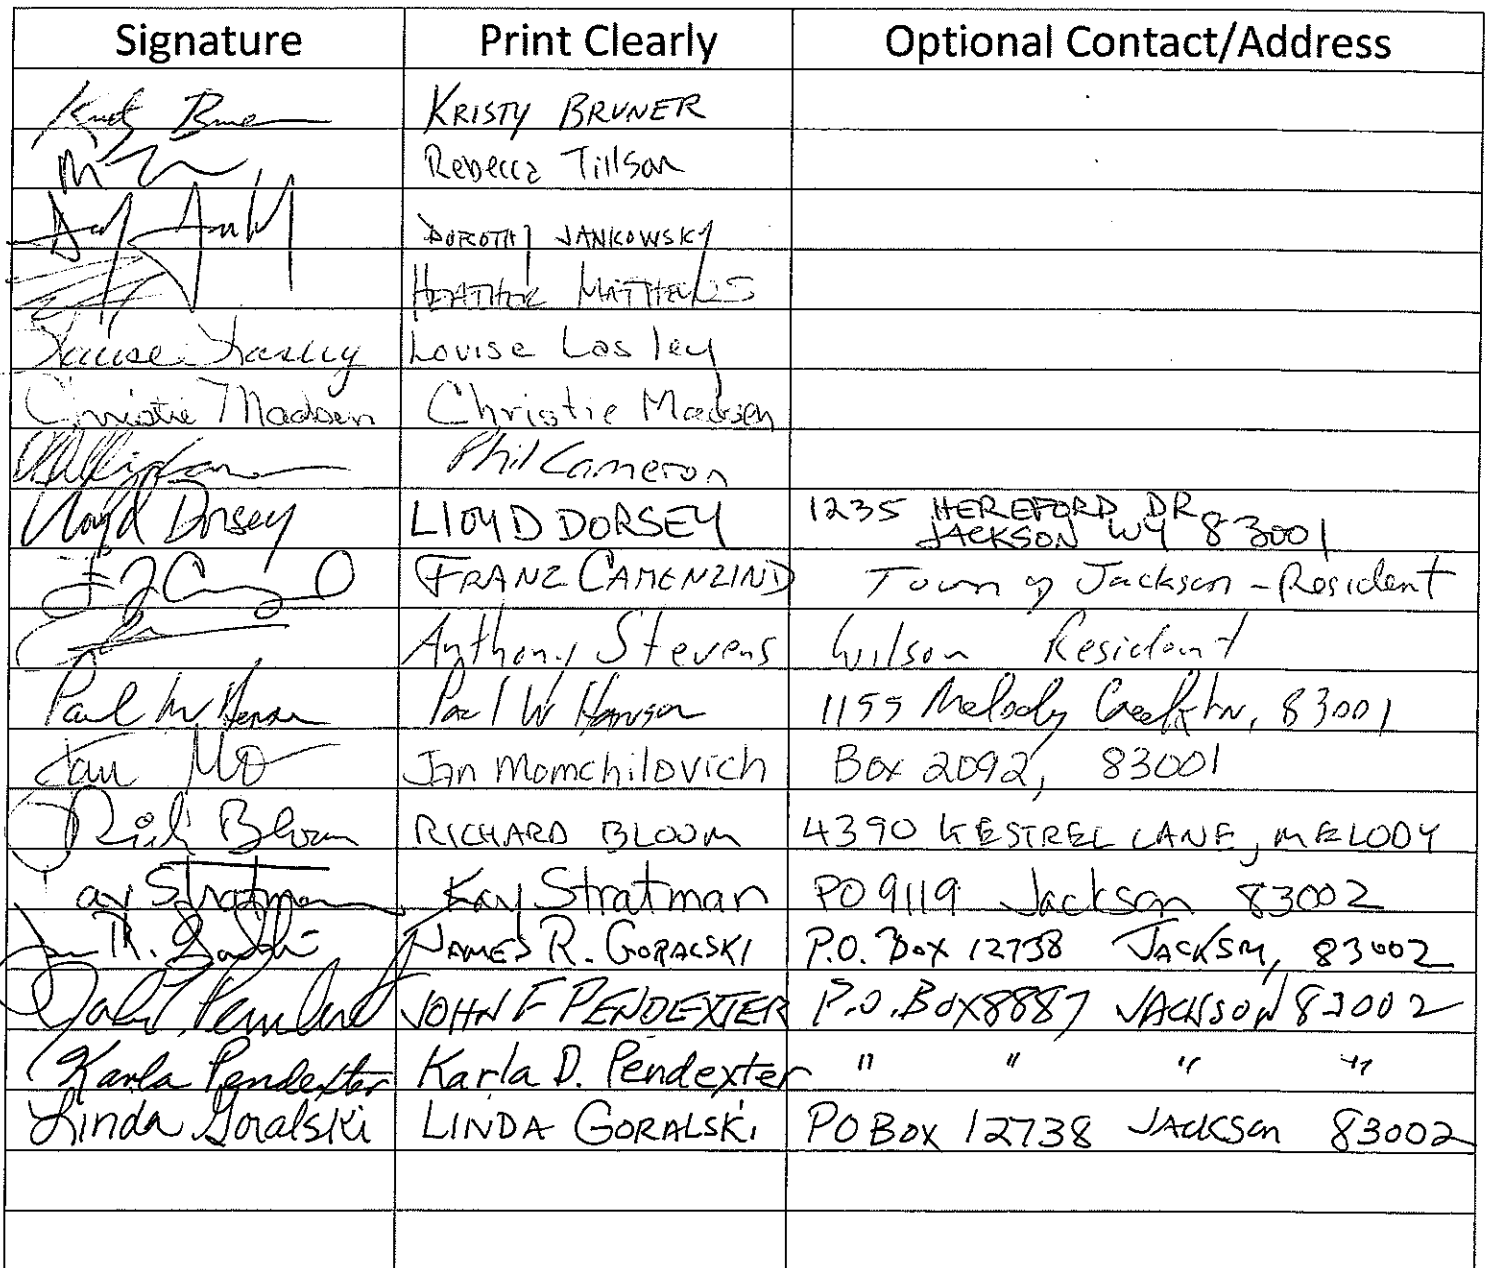 Signature Print Clearly Optional Contact/Address
KRISTY BRUNER
Rebecca Tillson
DOROTHY JANKOWSKY
HEATHER MATHEWS
Louise Lasley Louise Lasley
Christie Madsen Christie Madsen
Phil Cameron
Lloyd Dorsey LLOYD DORSEY 1235 HEREFORD DR
JACKSON WY 83001
FRANZ CAMENZIND Town of Jackson - Resident
Anthony Stevens Wilson Resident
Paul W Hansen Paul W Hansen 1155 Melody Creek Ln, 83001
Jan Mo Jan Momchilovich Box 2092, 83001
Rich Bloom RICHARD BLOOM 4390 KESTREL LANE, MELODY
Kay Stratman Kay Stratman PO 9119 Jackson 83002
JAMES R. GORALSKI P.O. Box 12738 JACKSON, 83002
John F. Pendexter JOHN F PENDEXTER P.O. BOX 8887 JACKSON 83002
Karla Pendexter Karla D. Pendexter " " " "
Linda Goralski LINDA GORALSKI PO BOX 12738 JACKSON 83002